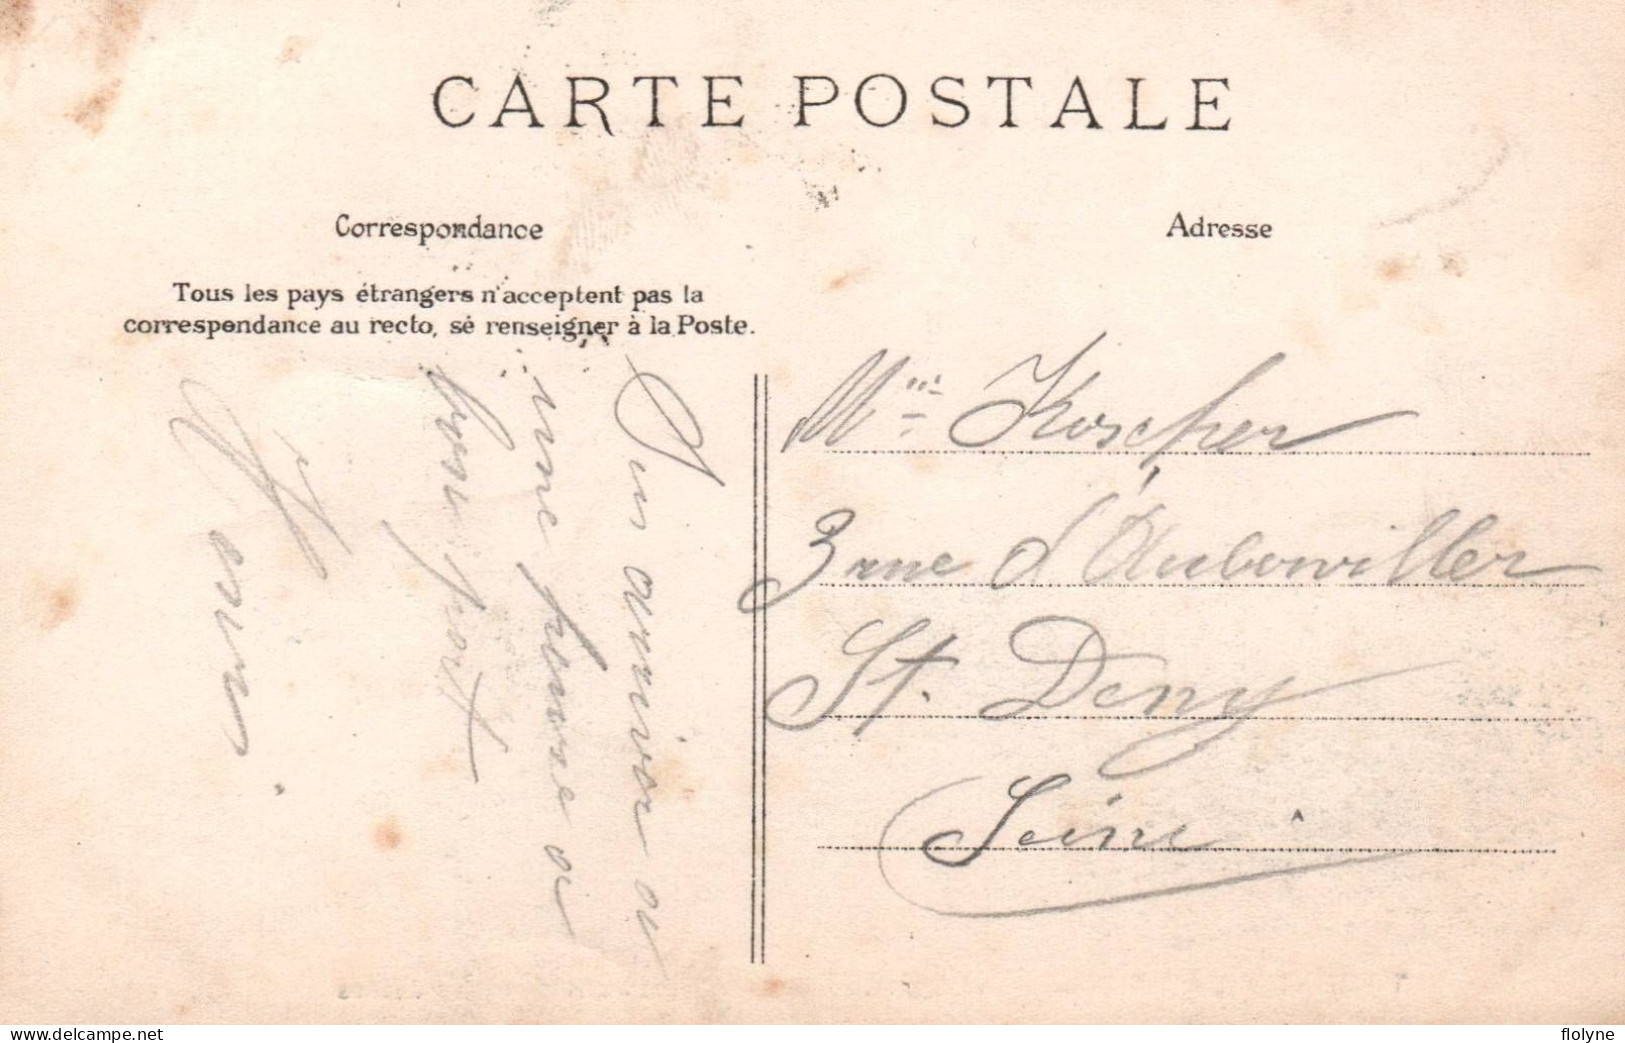 CARTE POSTALE
Correspondance
Adresse
Tous les pays étrangers n'acceptent pas la
correspondance au recto, se renseigner à la Poste.
Suis arrivée a
une heure a
bon port
Mme Koscher
3 rue d'Auberviller
St. Deny
Seine
www.delcampe.net
flolyne